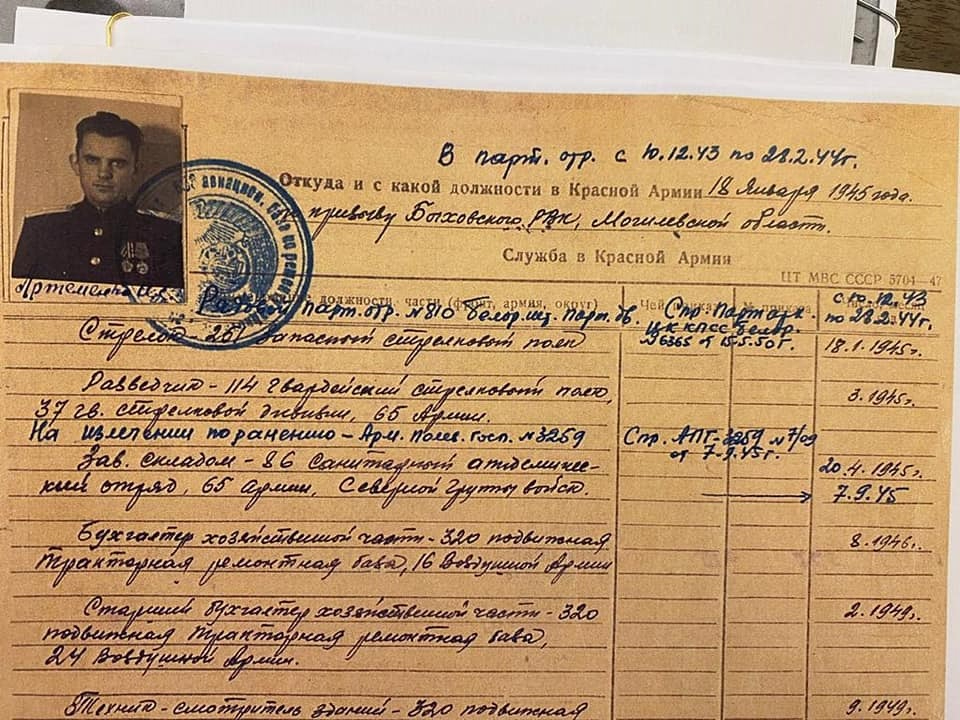 В парт. отр. с 10.12.43 по 28.2.44г.
Откуда и с какой должности в Красной Армии 18 Января 1945 года.
по призыву Быховского РВК, Могилевской области.
Служба в Красной Армии
ЦТ МВС СССР 5704—47
Артеменко
должности, части (фронт, армия, округ)
Чей приказ
№ приказа
Рядовой парт. отр. №810 белор. шт. парт. дв.
Стр. Партарх.
ЦК КПСС Белор.
№6365 от 15.5.50г.
с 10.12.43
по 28.2.44г.
Стрелок 261 Запасный стрелковый полк
18.1.1945г.
Разведчик - 114 гвардейский стрелковый полк,
3.1945г.
37 гв. стрелковой дивизии, 65 Армии.
На излечении по ранению - Арм. полев. госп. №3259
Спр. АПГ-3259 №7/09
от 7-9.45г.
Зав. складом - 86 санитарный эпидемичес-
20.4.1945г.
кий отряд, 65 Армии, Северной Группы войск.
7.9.45
Бухгалтер хозяйственной части - 320 подвижная
8.1946г.
тракторная ремонтная база, 16 Воздушной Армии
Старший бухгалтер хозяйственной части - 320
2.1949г.
подвижная тракторная ремонтная база,
24 Воздушной Армии.
Техник-смотритель зданий - 320 подвижная
9.1949г.